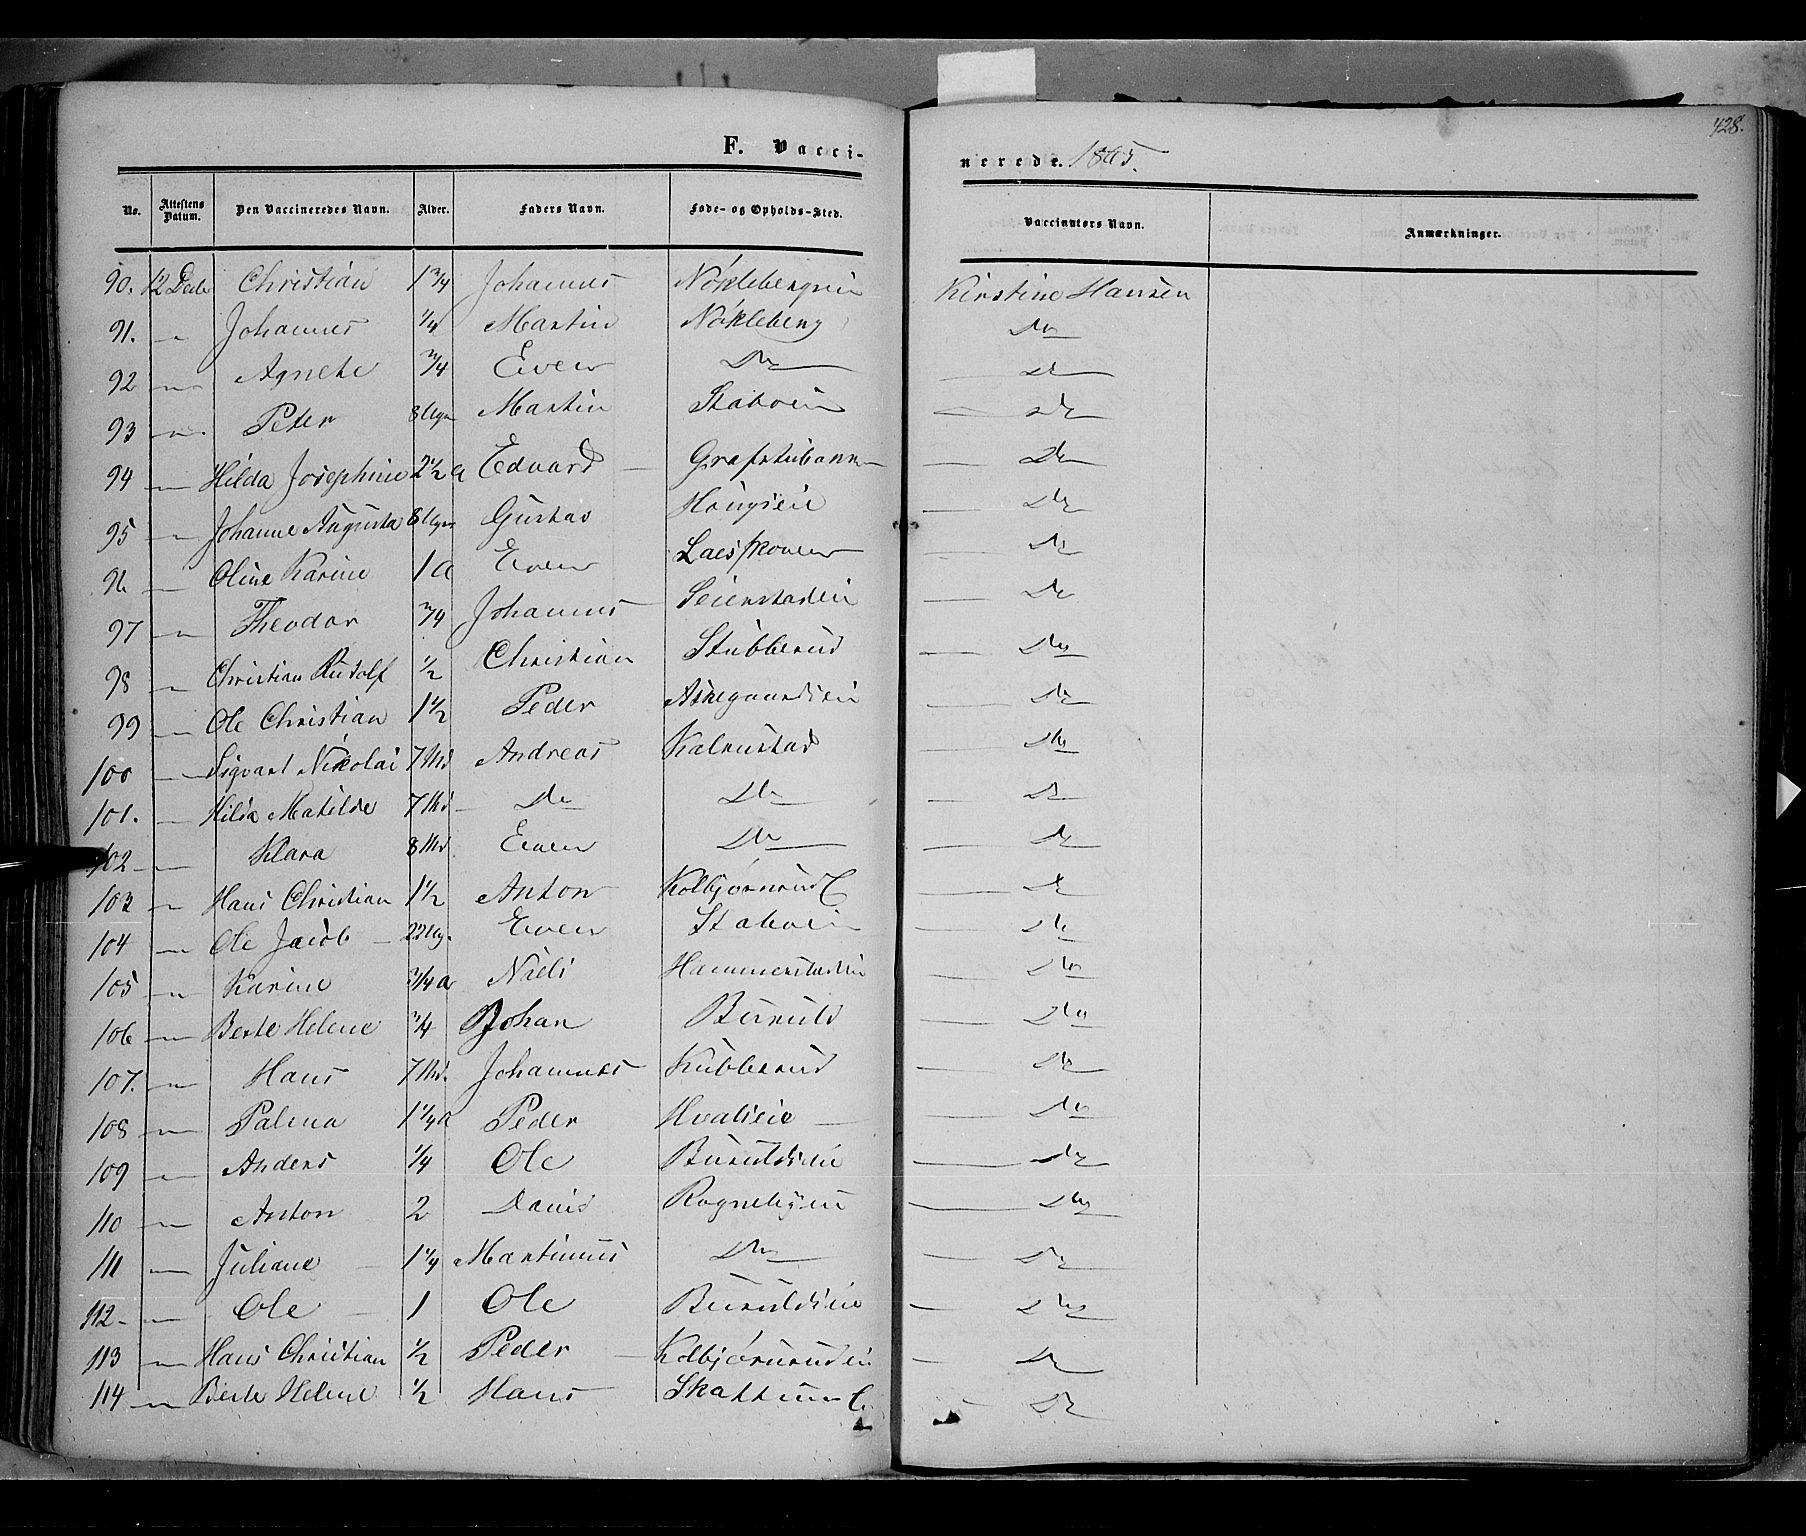 428.
F. Vacci-
nerede. 1865.
No. Attestens Datum. Den Vaccineredes Navn. Alder. Faders Navn. Føde- og Opholds-Sted. Vaccinators Navn. Anmærkninger.
90. 12 Christian 1 3/4 Johannes Nökleberg Kirstine Hansen
91. " Johannes 1/4 Martin Nökleberg Do
92 " Agnete 3/4 Even Do Do
93 " Peder 8 Martin Do
94 " Hilda Josephine 2 1/2 a Edvard Do
95 " Johanne Augusta 8 Gustav Do
96 " Oline Karine 1 a Even Do
97 " Theodor 3/4 Johannes Seierstadeie Do
98 " Christian Rudolf 1/2 Christian Stubberud Do
99 " Ole Christian 1 1/2 Peder Askegaardseie Do
100 " Sigvart Nikolai 7 Md Andreas Kalrustad Do
101. " Hilda Matilde 7 Md Do Do Do
102 " Klara 8 Md Even Do Do
103 " Hans Christian 1 1/2 Anton Kolbjørnrud E Do
104 " Ole Jacob 22 Ug. Even Do
105 " Karine 3/4 a Niels Hammerstadeie Do
106 " Berte Helene 3/4 Johan Buruld Do
107. " Hans 7 Md. Johannes Kubberud Do
108 " Palma 1 1/4 a Peder Hvalseie Do
109 " Anders 1/4 Ole Buruldseie Do
110 " Anton 2 Rognebyeie Do
111 " Juliane 1 1/4 Martinius Do Do
112 " Ole 1 Ole Buruldseie Do
113 " Hans Christian 1/2 Peder Kolbjørnrudeie Do
114 " Berte Helene 1/2 Hans Skattum E Do